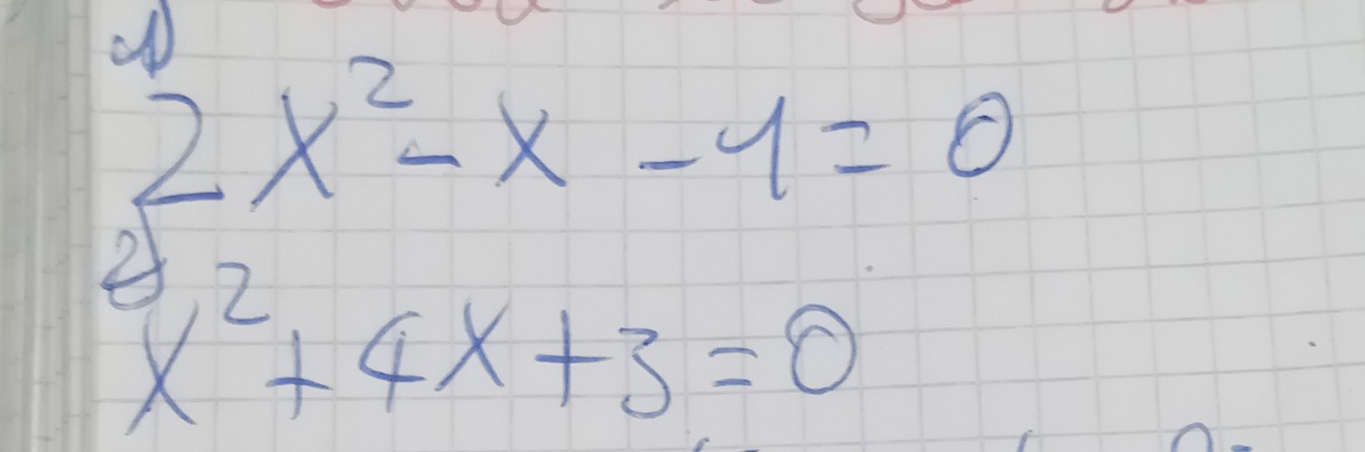 1)
2x² - x - 1 = 0
2)
x² + 4x + 3 = 0